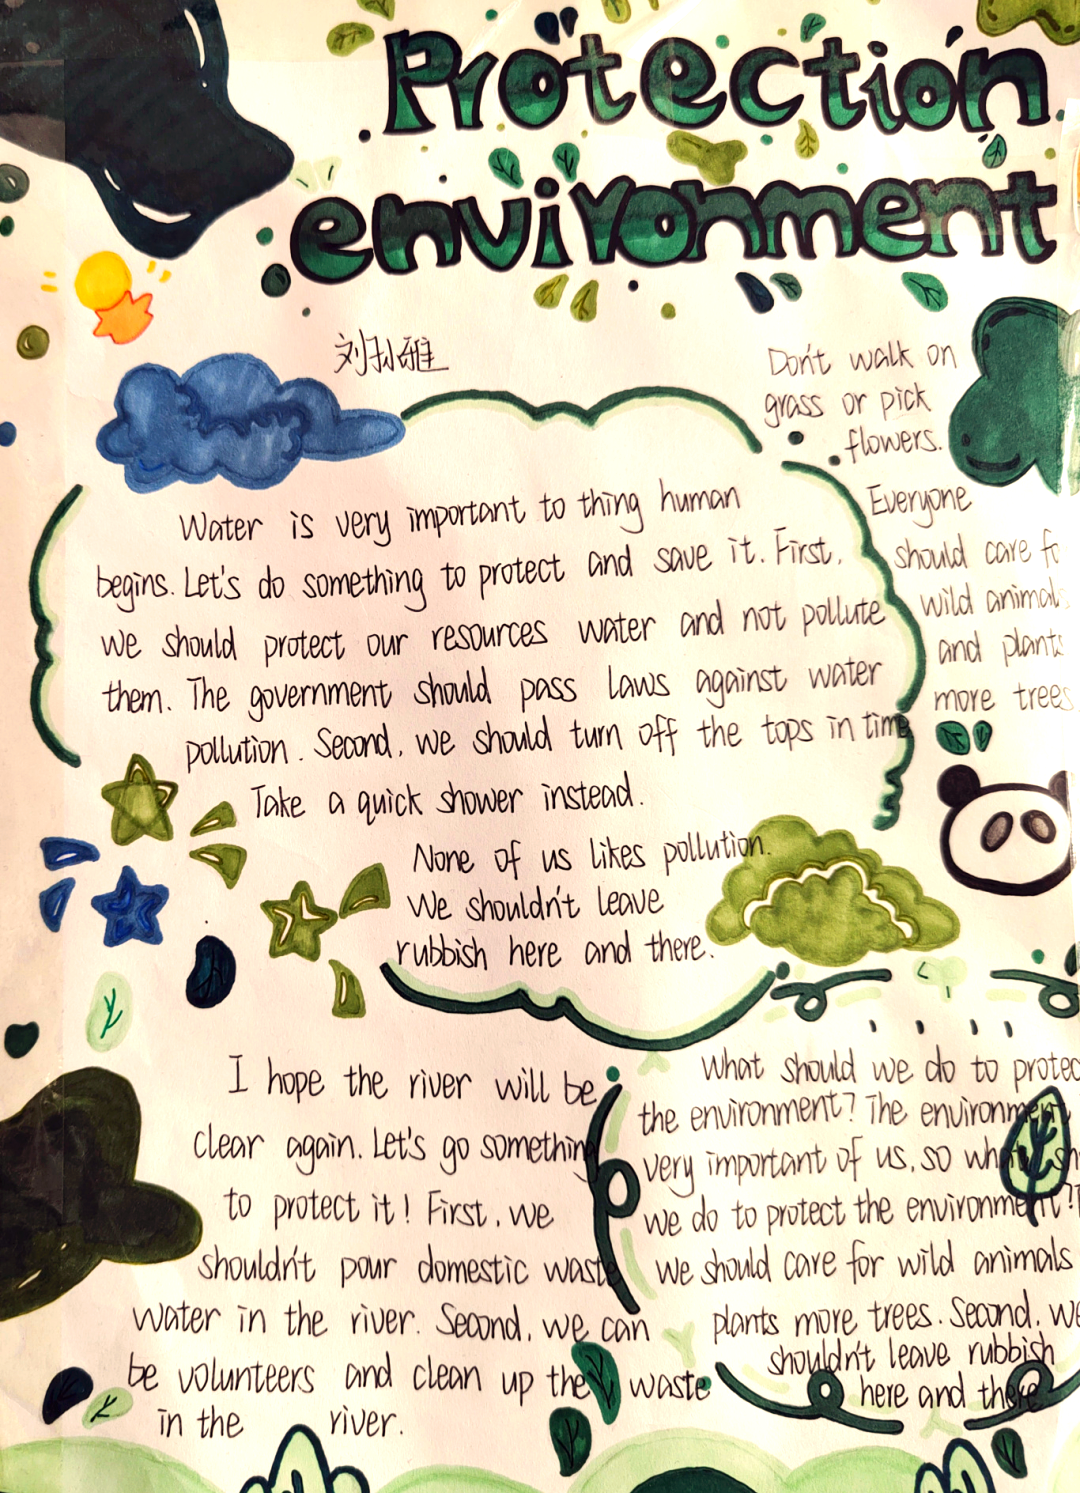 Protection
environment
刘孙雅
Don't walk on
grass or pick
flowers.
Everyone
should care
wild
and
more trees
Water is very important to thing human
begins. Let's do something to protect and save it. First,
we should protect our resources water and not pollute
them. The government should pass laws against water
pollution. Second, we should turn off the tops in time
Take a quick shower instead.
None of us likes pollution.
We shouldn't leave
rubbish here and there.
I hope the river will be
clear again. Let's go something
to protect it! First, we
shouldn't pour domestic waste
water in the river. Second, we can
be volunteers and clean up the waste
in the river.
What should we do to
the environment? The environment
very important of us, so what
we do to protect the environment?
we should care for wild animals
plants more trees. Second, we
shouldn't leave rubbish
here and there